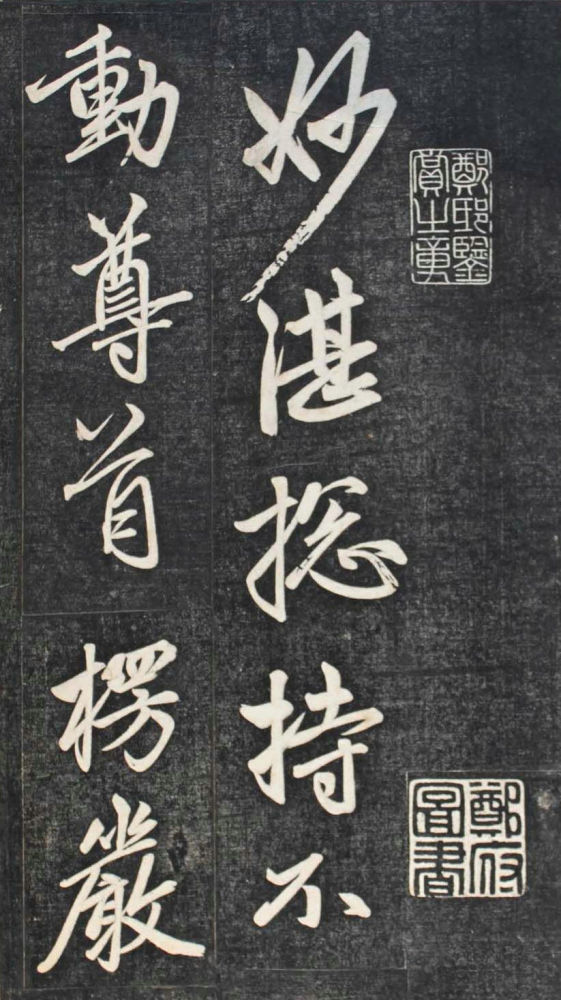 鄭邸鑒
賞之章
鄭府
圖書
妙湛捴持不
動尊首楞嚴